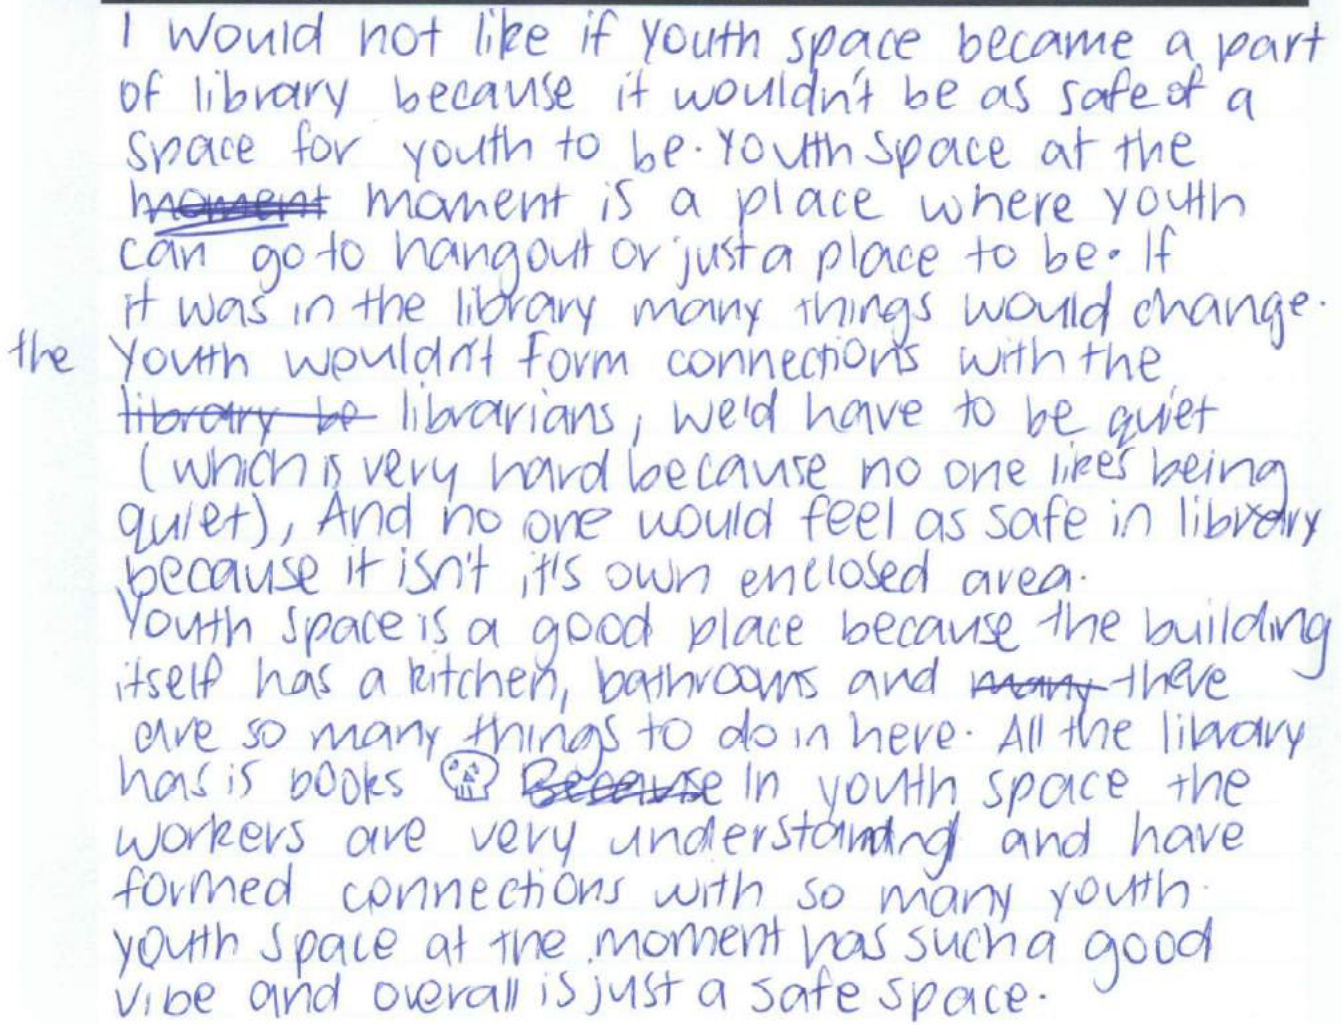 I would not like if youth space became a part
of library because it wouldn't be as safe of a
space for youth to be. Youth space at the
moment moment is a place where youth
can go to hangout or just a place to be. If
it was in the library many things would change.
the Youth wouldn't form connections with the
library be librarians, we'd have to be quiet
(which is very hard because no one likes being
quiet), And no one would feel as safe in library
because it isn't it's own enclosed area.
Youth space is a good place because the building
itself has a kitchen, bathrooms and many there
are so many things to do in here. All the library
has is books Because In youth space the
workers are very understanding and have
formed connections with so many youth.
youth space at the moment has such a good
vibe and overall is just a safe space.